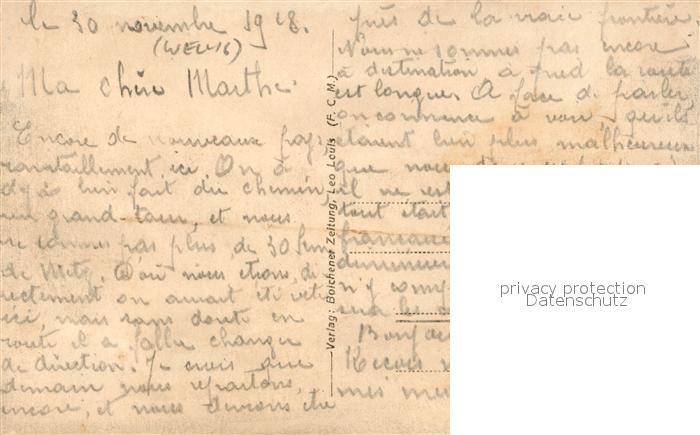 le 30 novembre 1918.
(WELVIG)
Ma chère Marthe.
Encore de nouveaux pays
ravitaillement ici. On a
déjà bien fait du chemin
un grand tour, et nous
ne sommes pas plus de 30 km
de Metz. D'où nous étions, di
rectement on aurait été vite
ici, mais sans doute en
route il a fallu changer
de direction. Je crois que
demain nous repartons,
encore, et nous devons être
près de la vraie frontière.
Nous ne sommes pas encore
à destination, à pied la route
est longue. A face de parler
on commence à voir qu'ils
étaient bien plus malheureux
que nous
il ne
tout était
français
n'y
sur les
Bonjour
Reçois
mes
Verlag: Bolchener Zeitung, Leo Louis (F. C. M.)
privacy protection
Datenschutz